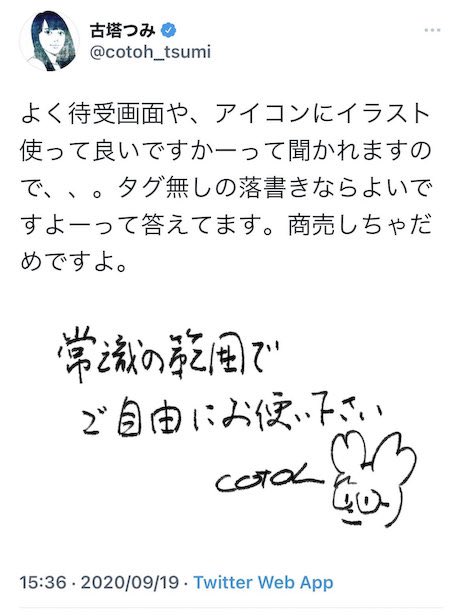 古塔つみ
@cotoh_tsumi
よく待受画面や、アイコンにイラスト
使って良いですかーって聞かれますの
で、、。タグ無しの落書きならよいで
すよーって答えてます。商売しちゃだ
めですよ。
常識の範囲で
ご自由にお使い下さい
COTOh
15:36 · 2020/09/19 · Twitter Web App